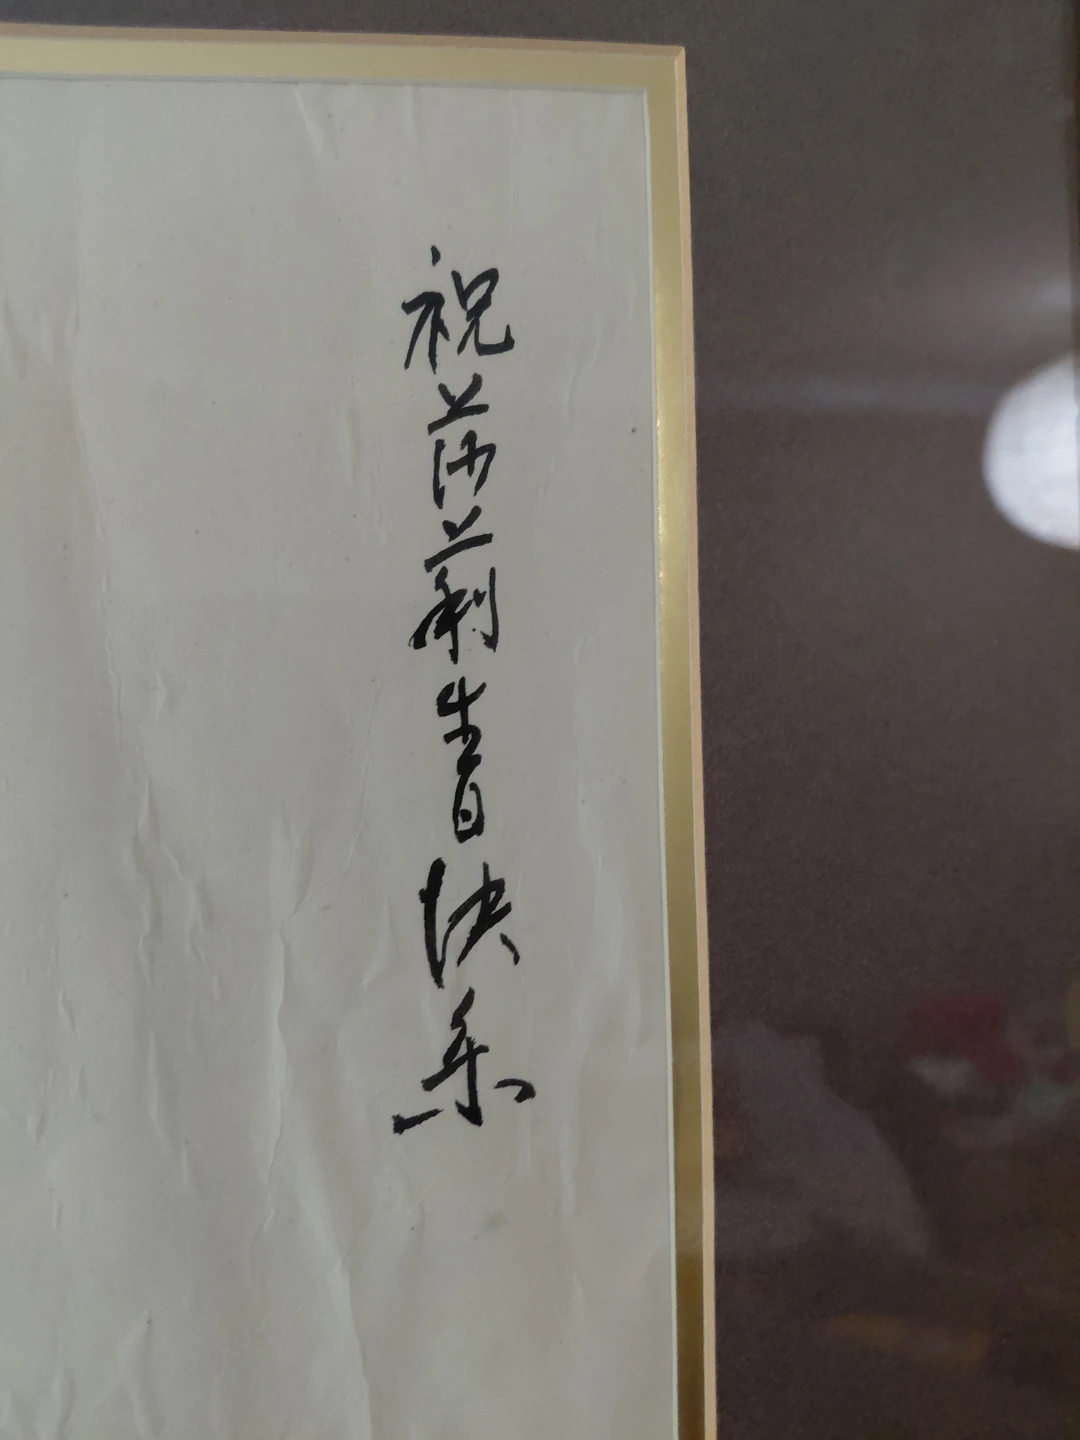 祝莎莉生日快乐